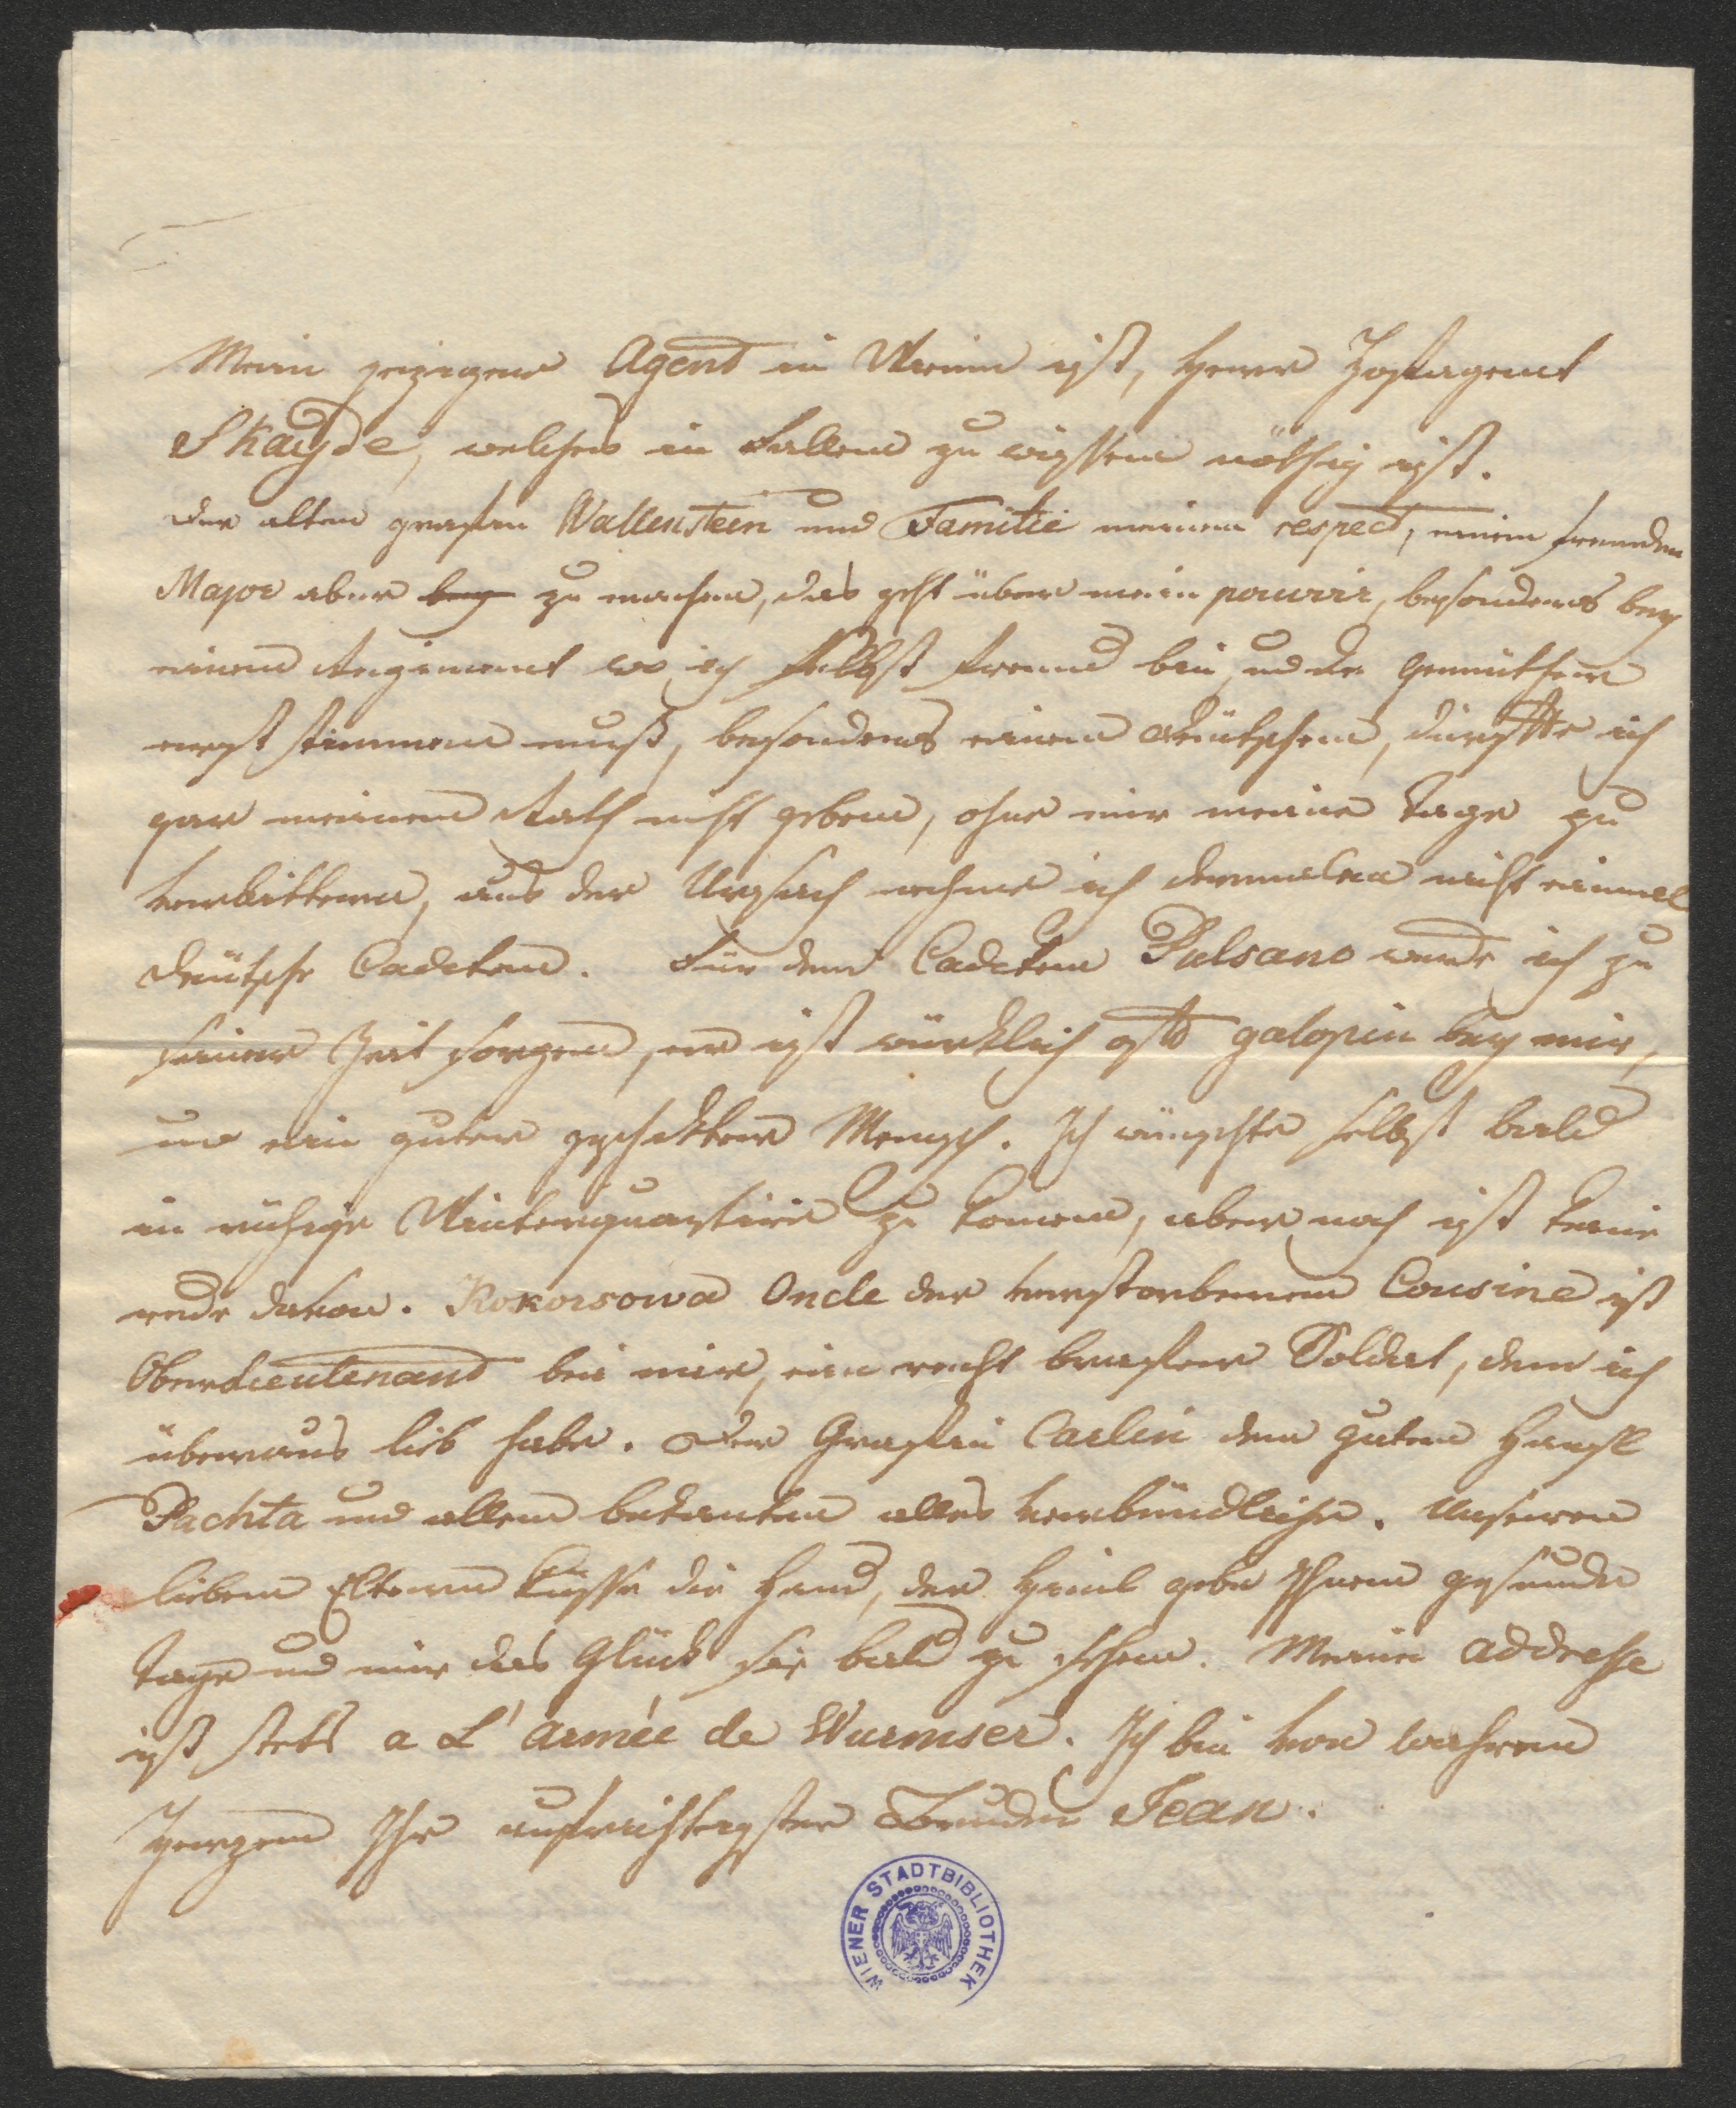 Mein jeziger Agend in Wienn ist, Herr Hofagent
Skayde, welches in Fallen zu wissen nöthig ist.
der alten grafin Wallenstein und Familie meinen respect, einen fremden
Major aber bey zu machen, das geht über mein pouvoir, besonders bey
einen Regiment wo ich selbst fremd bin und die gemüther
erst stimmen muß, besonders einen deütschen, dürffte ich
gar meinen Rath nicht geben, ohne mir meine Tage zu
verbittern, aus der Ursach nehme ich dermalen nicht einmal
deütsche Cadeten. Für den Cadeten Pulsano werde ich zu
seiner Zeit sorgen, er ist würklich galopin bey mir,
und ein guter geschikter Mensch. Ich wünschte selbst bald
in ruhige Winterquartire zu komen, aber noch ist keine
rede davon. Kokorsowa Oncle der verstorbenen Cousine ist
Oberlieutenand bei mir, ein recht brafer Soldat, den ich
überaus lieb habe. der Grafin Carlin dem guten Hansl
Pachta und allen bekanten alles verbündliche. Unseren
lieben Eltern küsse die Hand, der Himl gebe Ihnen gesunde
Tage und mir das Glück sie bald zu sehen. Meine addresse
ist stets a L'armée de Wurmser. Ich bin von wahren
Herzen Ihr aufrichtigster Bruder Jean.
WIENER STADTBIBLIOTHEK